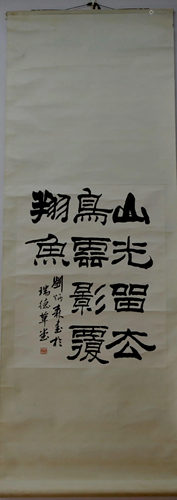 山光留云
鳥雲影覆
翔魚
劉炳森書於
瑞德草堂